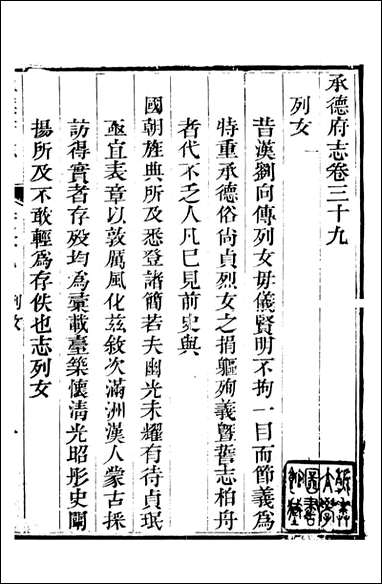 承德府志卷三十九
列女一
昔漢劉向傳列女毋儀賢明不拘一目而節義爲
特重承德俗尙貞烈女之捐軀殉義曁誓志柏舟
者代不乏人凡已見前史與
國朝旌典所及悉登諸簡若夫幽光未耀有待貞珉
亟宜表章以敦厲風化茲敘次滿洲漢人蒙古採
訪得實者存歿均爲彙載臺築懷淸光昭彤史闡
揚所及不敢輕爲存佚也志列女
列女